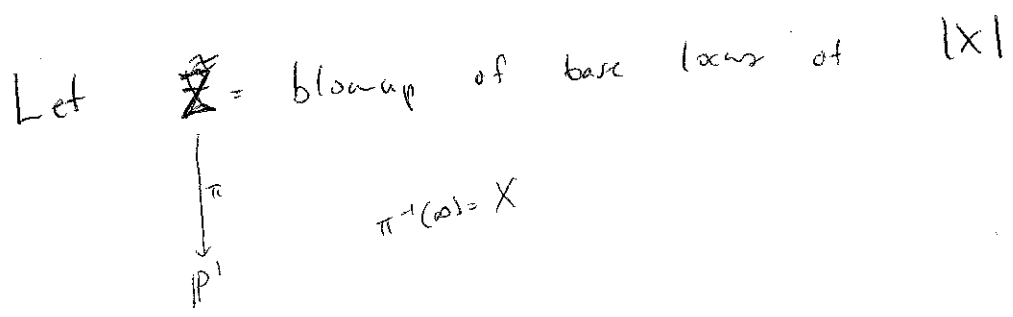 Let Z̃ = blowup of base locus of |X|
π
π⁻¹(∞) = X
ℙ¹